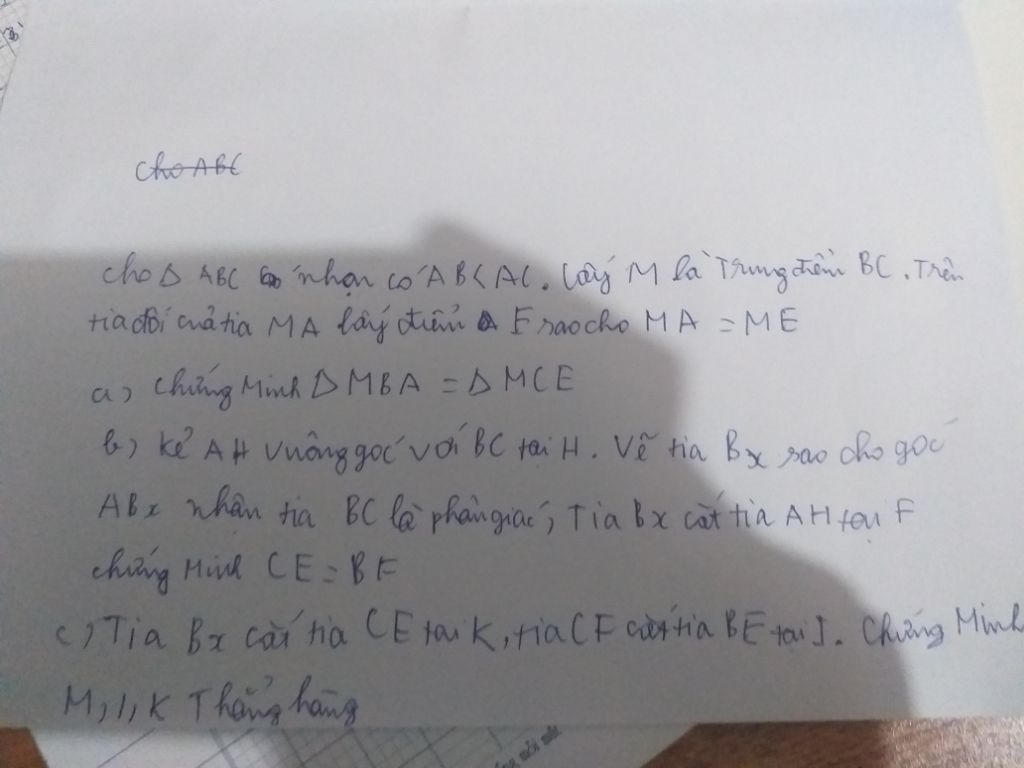 cho ABC
cho Δ ABC nhọn có AB<AC. Lấy M là Trung điểm BC. Trên
tia đối của tia MA lấy điểm E sao cho MA = ME
a) chứng Minh Δ MBA = Δ MCE
b) Kẻ AH vuông góc với BC tại H. Vẽ tia Bx sao cho góc
ABx nhận tia BC là phân giác, Tia Bx cắt tia AH tại F
chứng Minh CE = BF
c) Tia Bx cắt tia CE tại K, tia CF cắt tia BE tại I. Chứng Minh
M, I, K Thẳng hàng